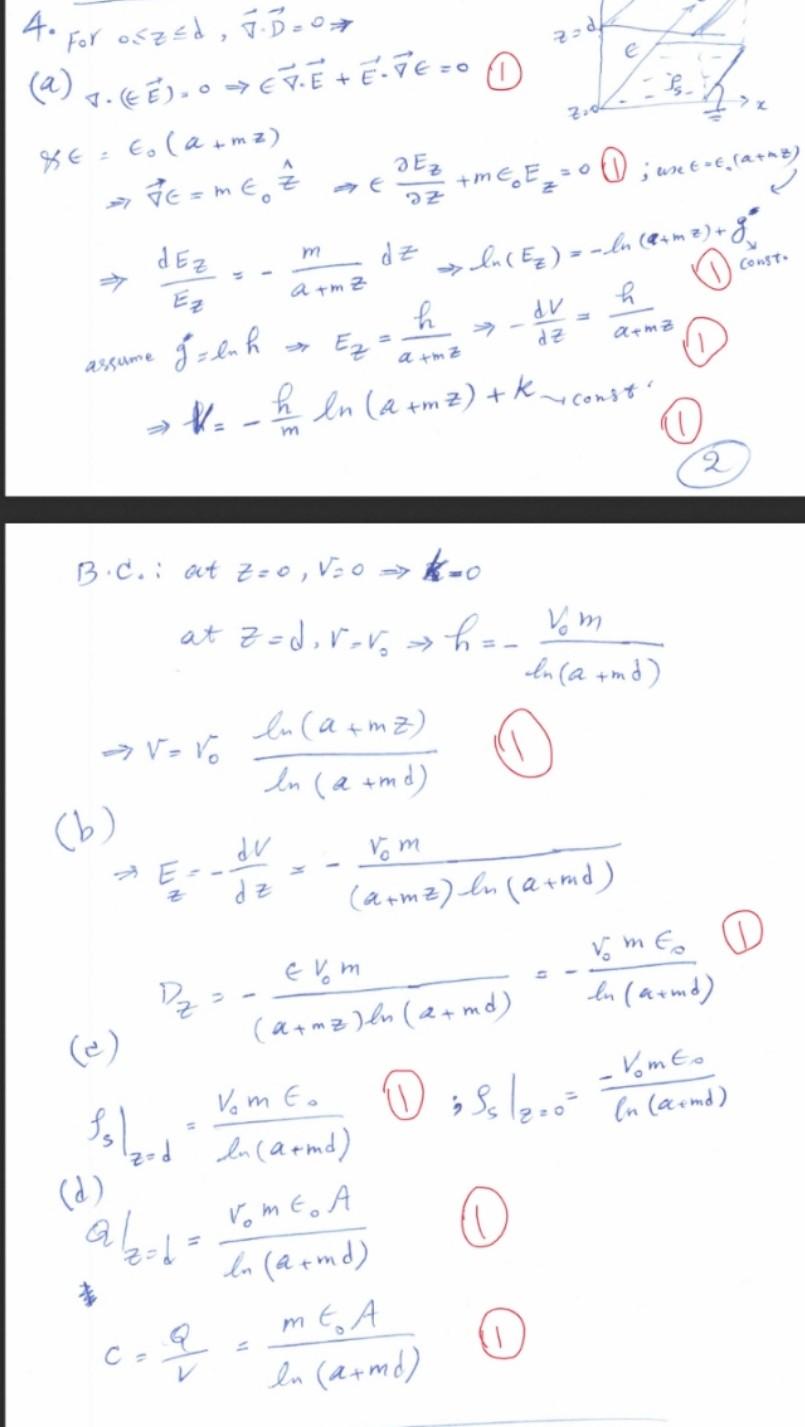 4. For 0≤z≤d, ∇⃗·D⃗=0 ⇒
z=d
ϵ
ρs
z=0
x
(a) ∇·(ϵE⃗)=0 ⇒ ϵ∇⃗·E⃗ + E⃗·∇⃗ϵ=0 ①
& ϵ = ϵ₀(a+mz)
⇒ ∇⃗ϵ = mϵ₀ẑ ⇒ ϵ ∂E_z/∂z + mϵ₀E_z=0 ① ; use ϵ=ϵ₀(a+mz)
⇒ dE_z/E_z = - m/(a+mz) dz ⇒ ln(E_z) = -ln(a+mz)+g
const. ①
assume g=ln h ⇒ E_z = h/(a+mz) ⇒ -dV/dz = h/(a+mz) ①
⇒ V= - h/m ln(a+mz)+k → const. ①
2
B.C.: at z=0, V=0 ⇒ k=0
at z=d, V=V₀ ⇒ h=- V₀m/ln(a+md)
⇒ V= V₀ ln(a+mz)/ln(a+md) ①
(b)
⇒ E_z=-dV/dz = - V₀m/((a+mz)ln(a+md))
D_z = - ϵV₀m/((a+mz)ln(a+md)) = - V₀mϵ₀/ln(a+md) ①
(c)
ρs|z=d = V₀mϵ₀/ln(a+md) ① ; ρs|z=0 = -V₀mϵ₀/ln(a+md)
(d)
Q|z=d = V₀mϵ₀A/ln(a+md) ①
C = Q/V = mϵ₀A/ln(a+md) ①